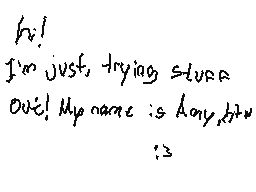 hi!
I'm just, trying stuff
out! My name is Amy, btw
:3